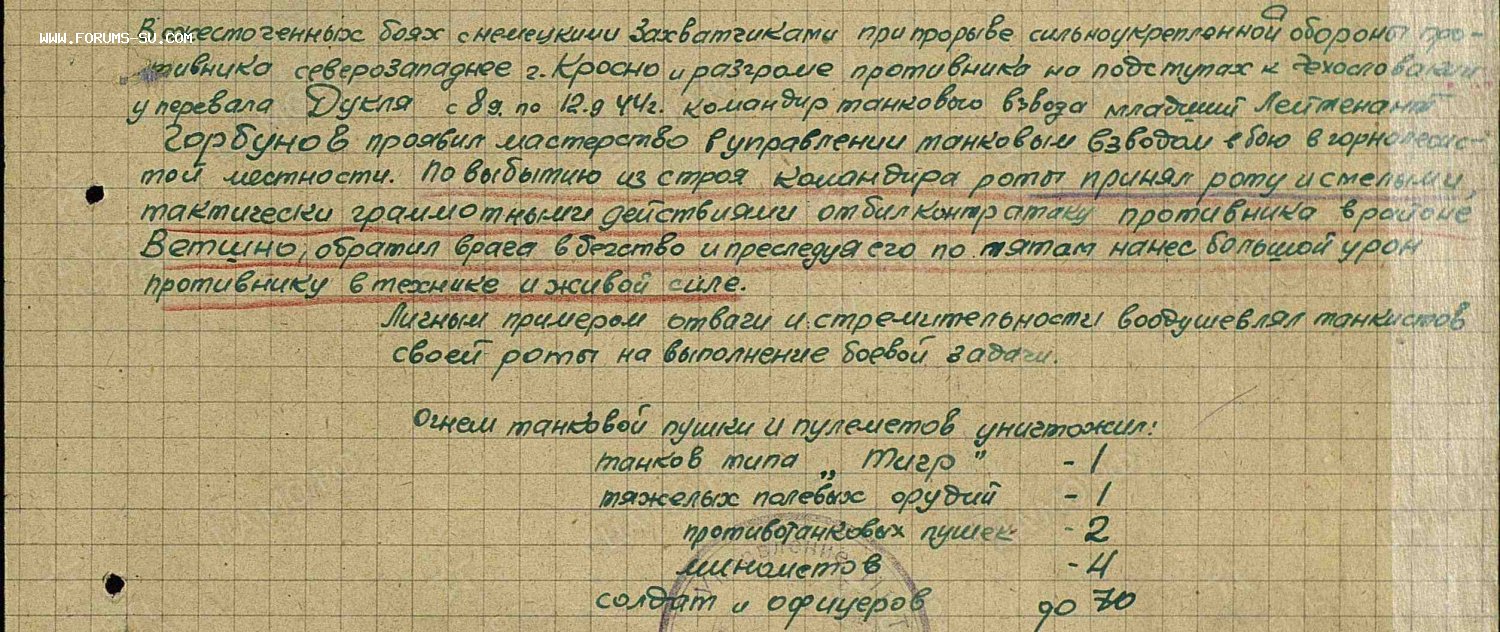 В ожесточенных боях с немецкими захватчиками при прорыве сильноукрепленной обороны про-
WWW.FORUMS-SU.COM
тивника северозападнее г. Кросно и разгроме противника на подступах к Чехословакии
у перевала Дукля с 8.9. по 12.9 44г. командир танкового взвода младший Лейтенант
Горбунов проявил мастерство в управлении танковым взводом в бою в горнолесис-
той местности. По выбытию из строя командира роты принял роту и смелыми,
тактически грамотными действиями отбил контратаку противника в районе
Ветшно, обратил врага в бегство и преследуя его по пятам нанес большой урон
противнику в технике и живой силе.
Личным примером отваги и стремительности воодушевлял танкистов
своей роты на выполнение боевой задачи.
Огнем танковой пушки и пулеметов уничтожил:
танков типа „Тигр" - 1
тяжелых полевых орудий - 1
противотанковых пушек - 2
минометов - 4
солдат и офицеров до 70